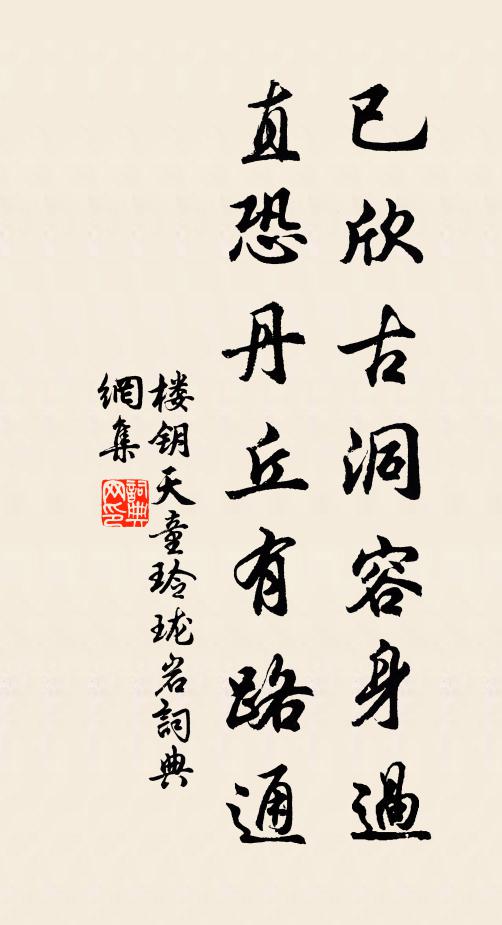 已欣古洞容身過
直恐丹丘有路通
楼钥天童玲珑岩詞典
網集
詞典
网印